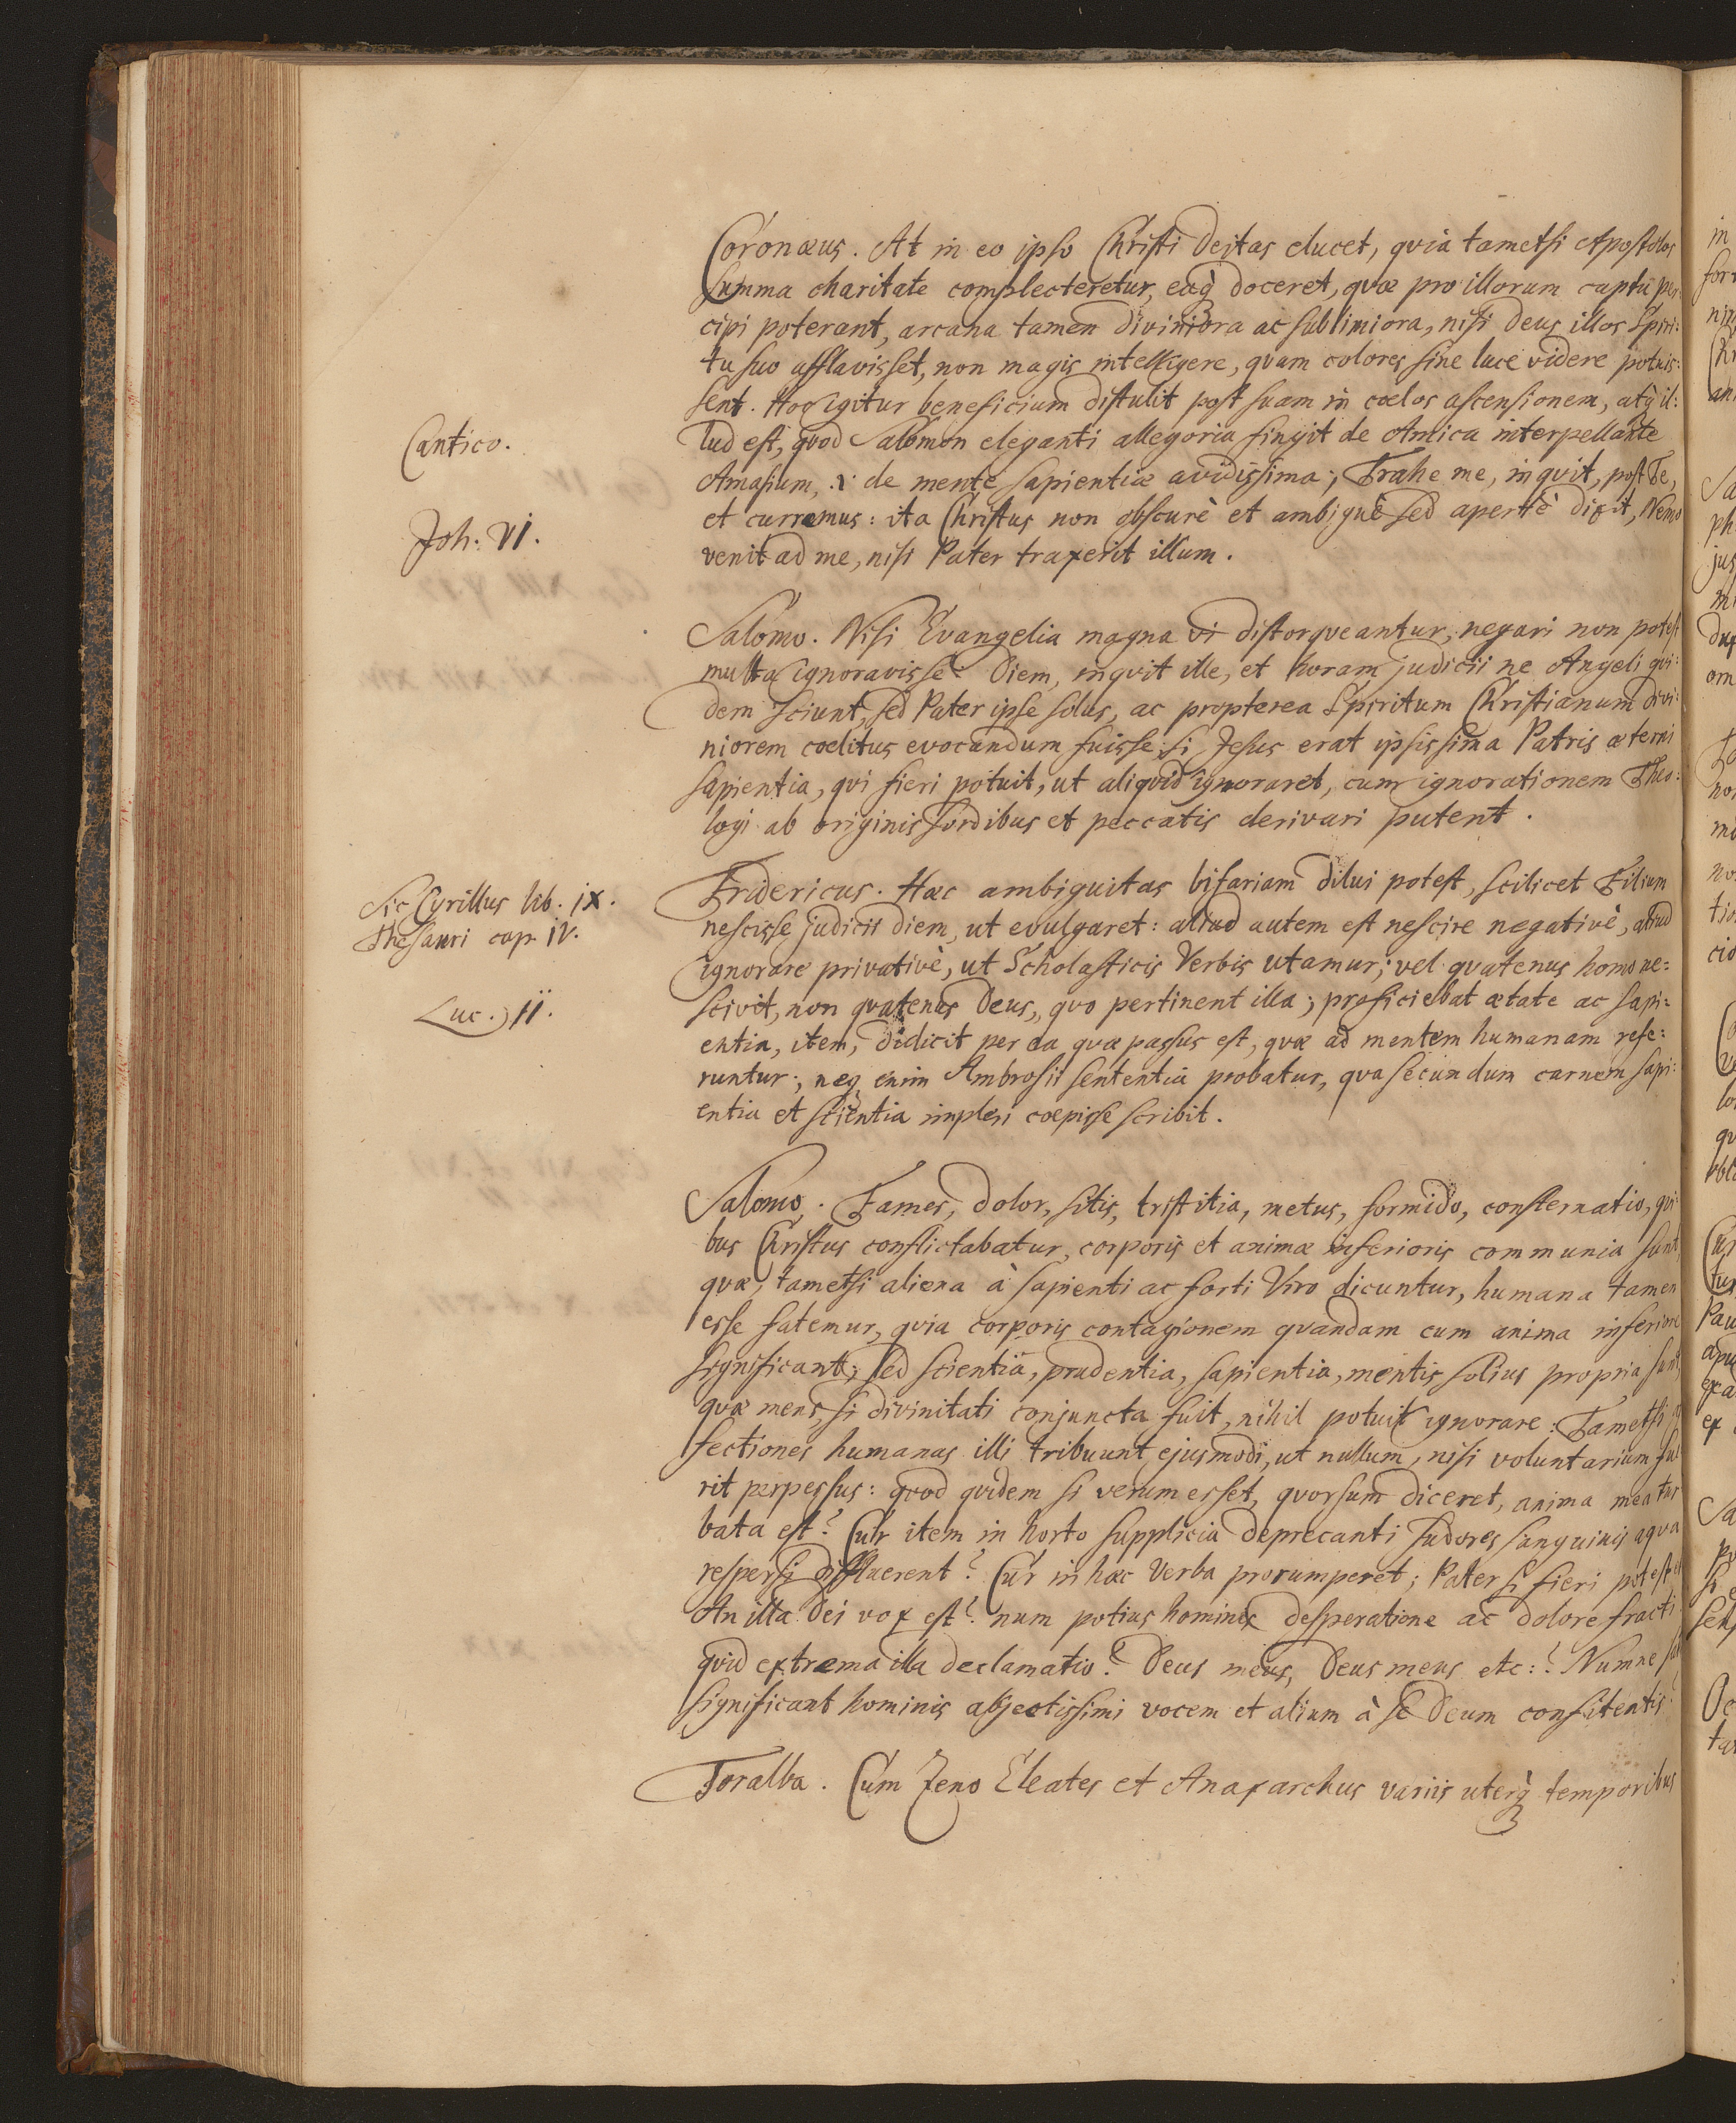 Coronæus. At in eo ipso Christi Deitas elucet, quia tametsi Apostolos
summa charitate complecteretur, eaq̀ doceret, quæ pro illorum captu per
cipi poterant, arcana tamen diviniora ac sublimiora, nisi Deus illos Spiri:
tu suo afflavisset, non magis intelligere, quam colores sine luce videre potuis:
sent. Hoc igitur beneficium distulit post suam in cœlos ascensionem, atq̀ il:
Cantico.
lud est, quod Salomon eleganti allegoria fingit de Amica interpellante
Amasium, .i. de mente sapientiæ avidissima; Trahe me, inquit, post Te,
Joh. VI.
et curremus: ita Christus non obscurè et ambiguè sed apertè dixit, Nemo
venit ad me, nisi Pater traxerit illum.
Salomo. Nisi Evangelia magna vi distorqueantur, negari non potest
multa ignoravisse. Diem, inquit ille, et horam judicii ne Angeli qui:
dem sciunt, sed Pater ipse solus, ac propterea Spiritum Christianum divi:
niorem cœlitus evocandum fuisse: si Jesus erat ipsissima Patris æterni
sapientia, qui fieri potuit, ut aliquid ignoraret, cum ignorationem Theo:
logi ab originis sordibus et peccatis derivari putent.
Sic Cyrillus lib. IX.
Thesauri cap. IV.
Fridericus. Hæc ambiguitas bifariam dilui potest, scilicet Filium
nescisse judicii diem, ut evulgaret: aliud autem est nescire negativè, aliud
ignorare privativè, ut Scholasticis Verbis utamur; vel quatenus homo ne:
Luc. II.
scivit, non quatenus Deus, quo pertinent illa; proficiebat ætate ac sapi:
entia, item, didicit per ea quæ passus est, quæ ad mentem humanam refe:
runtur; neq̀ enim Ambrosii sententia probatur, qua secundum carnem sapi:
entia et scientia impleri cœpisse scribit.
Salomo. Fames, dolor, sitis, tristitia, metus, formido, consternatio, qui:
bus Christus conflictabatur, corporis et animæ inferioris communia sunt,
quæ, tametsi aliena à sapienti ac forti Viro dicuntur, humana tamen
esse fatemur, quia corporis contagionem quandam cum anima inferiore
significant; sed scientia, prudentia, sapientia, mentis solius propria sunt,
quæ mens, si divinitati conjuncta fuit, nihil potuit ignorare: Tametsi af
fectiones humanas illi tribuunt ejusmodi, ut nullum, nisi voluntarium fue
rit perpessus: quod quidem si verum esset, quorsum diceret, anima mea tur
bata est? Cur item in horto supplicia deprecanti sudores sanguinis aqua
respersi diffluerent? Cur in hæc Verba prorumperet; Pater si fieri potest etc
An illa Dei vox est? num potius hominis desperatione ac dolore fracti
quid extrema illa declamatio? Deus meus, Deus meus etc:? Numne
significant hominis abjectissimi vocem et alium à se Deum confitentis?
Toralba. Cum Zeno Eleates et Anaxarchus variis uterq̀ temporibus